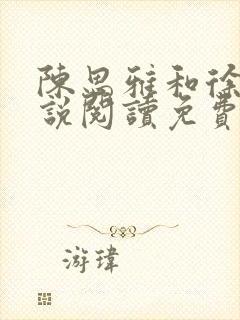 陳思雅和徐
說閱讀免費
游瑋